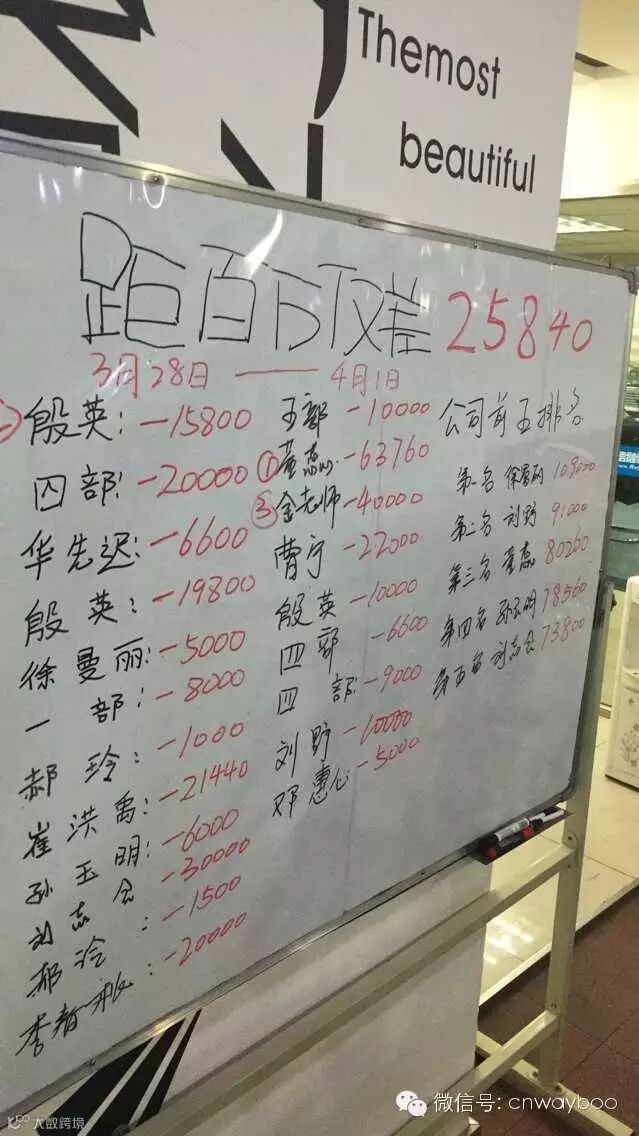 Themost
beautiful
距百万仅差 25840
3月28日 — 4月1日
殷英: -15800
四部: -20000
华先迟: -6600
殷英: -19800
徐曼丽: -5000
一部: -8000
郝玲: -1000
崔洪禹: -21440
孙玉明: -6000
刘志会 -30000
郝冷: -1500
李 : -20000
王部 -10000
① 董蕊 -63760
③ 金老师 -40000
曹宁 -22000
殷英 -10000
四部 -6600
四部 -9000
刘野 -10000
邓惠心 -5000
公司前五排名
第一名 徐曼丽 108000
第二名 刘野 91000
第三名 董蕊 80260
第四名 孙玉明 78560
第五名 刘志会 73800
微信号: cnwayboo
大数跨境